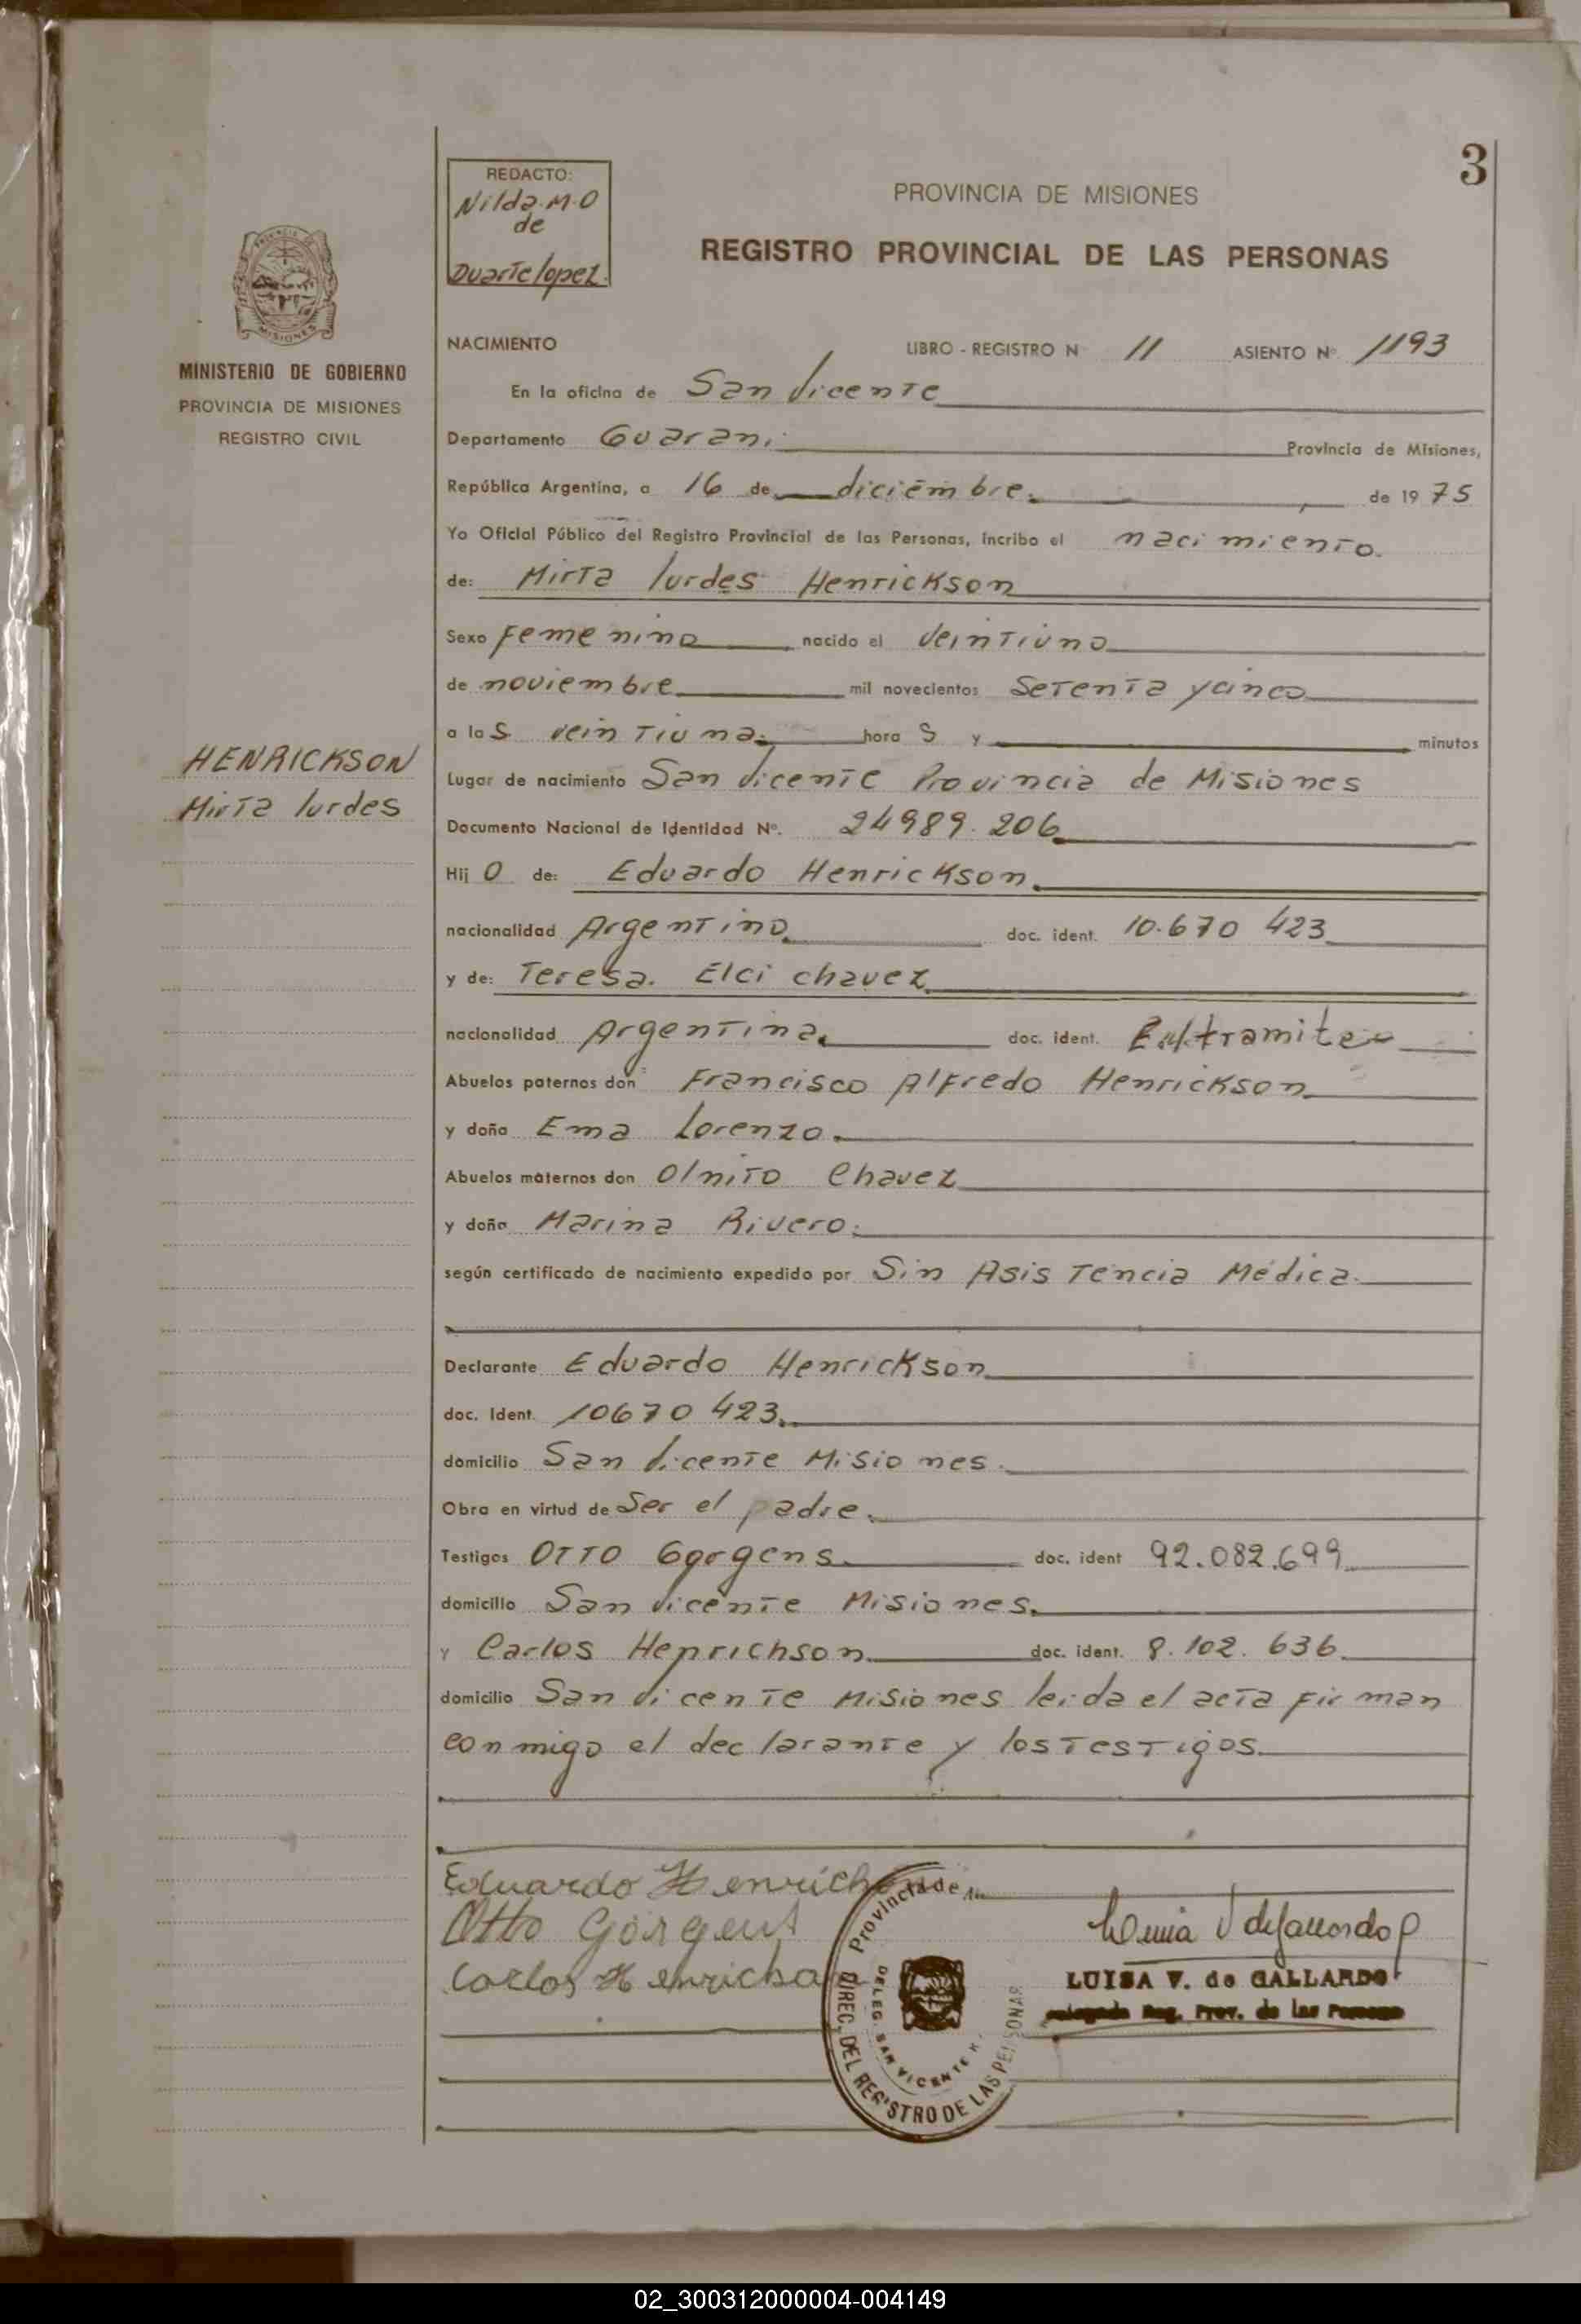 3
REDACTO:
Nilda M.O
de
Duarte lopez.
PROVINCIA DE MISIONES
REGISTRO PROVINCIAL DE LAS PERSONAS
MISIONES
MINISTERIO DE GOBIERNO
PROVINCIA DE MISIONES
REGISTRO CIVIL
HENRICKSON
Mirta lurdes
NACIMIENTO LIBRO - REGISTRO N 11 ASIENTO Nº. 1193
En la oficina de San Vicente
Departamento Guarani Provincia de Misiones,
República Argentina, a 16 de diciembre. de 19 75
Yo Oficial Público del Registro Provincial de las Personas, incribo el nacimiento.
de: Mirta lurdes Henrickson
Sexo Femenino nacido el veintiuno
de noviembre mil novecientos Setenta y cinco
a las veintiuna. hora s y minutos
Lugar de nacimiento San Vicente Provincia de Misiones
Documento Nacional de Identidad Nº. 24989.206
Hij o de: Eduardo Henrickson.
nacionalidad Argentino. doc. ident. 10.670 423
y de: Teresa. Elci chavez
nacionalidad Argentina. doc. ident. En tramite
Abuelos paternos don Francisco Alfredo Henrickson
y doña Ema Lorenzo.
Abuelos maternos don Olnito Chavez
y doña Marina Rivero.
según certificado de nacimiento expedido por Sin Asistencia Médica.
Declarante Eduardo Henrickson
doc. Ident. 10670 423.
domicilio San Vicente Misiones.
Obra en virtud de Ser el padre.
Testigos Otto Gorgens doc. ident 92.082.699
domicilio San Vicente Misiones.
y Carlos Henrichson doc. ident. 8.102.636
domicilio San Vicente Misiones leida el acta firman
conmigo el declarante y los testigos.
Eduardo Henrichson
Otto Görgens
Carlos Henrichson
Provincia de
DIREC. DEL REGISTRO DE LAS PERSONAS
DELEG. SAN VICENTE
LUISA V. de GALLARDO
Delegada Reg. Prov. de las Personas
02_300312000004-004149